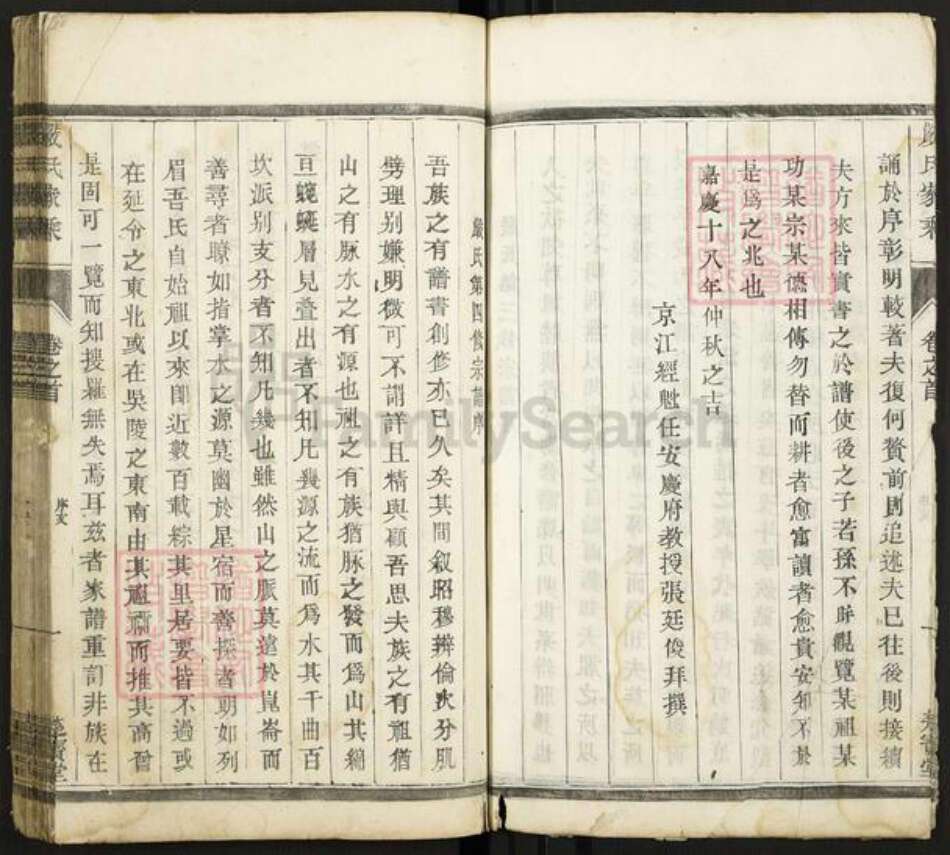 誦於序彰明較著夫復何贅前則追述夫已往後則接續
夫方來皆實書之於譜使後之子若孫不時觀覽某祖某
功某宗某德相傳勿替而耕者愈富讀者愈貴安知不於
是爲之兆也
嘉慶十八年仲秋之吉
京江經魁任安慶府教授張廷俊拜撰
嚴氏第四修宗譜序
吾族之有譜書創修亦已久矣其間叙昭穆辨倫次分肌
劈理别嫌明微可不謂詳且精與顧吾思夫族之有祖猶
山之有脉水之有源也祖之有族猶脉之發而爲山其綿
亘蜿蜒層見叠出者不知凡幾源之流而爲水其千曲百
坎派别支分者不知凡幾也雖然山之脈莫遠於崑崙而
善尋者瞭如指掌水之源莫幽於星宿而善探者朗如列
眉吾氏自始祖以來即近數百載綜其里居要皆不過或
在延令之東北或在吳陵之東南由其禰而推其高曾
是固可一覽而知搜羅無失焉耳兹者家譜重訂非族在
嚴氏家乘
卷之首
序文
FamilySearch